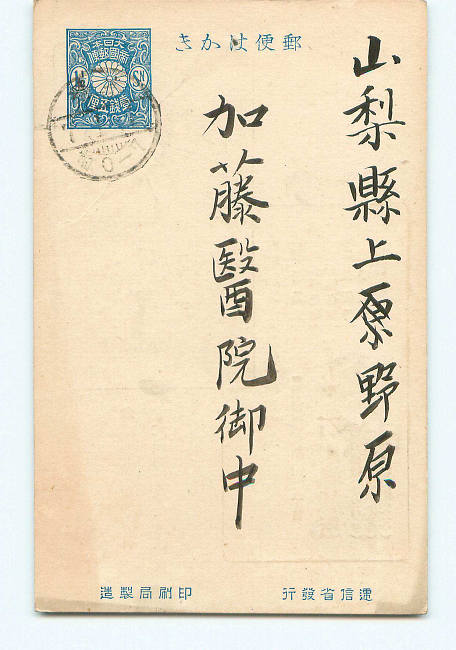 郵便はかき
大日本帝國郵便
1½ Sn.
壹錢五厘
山梨縣上野原
加藤醫院御中
遞信省發行
印刷局製造